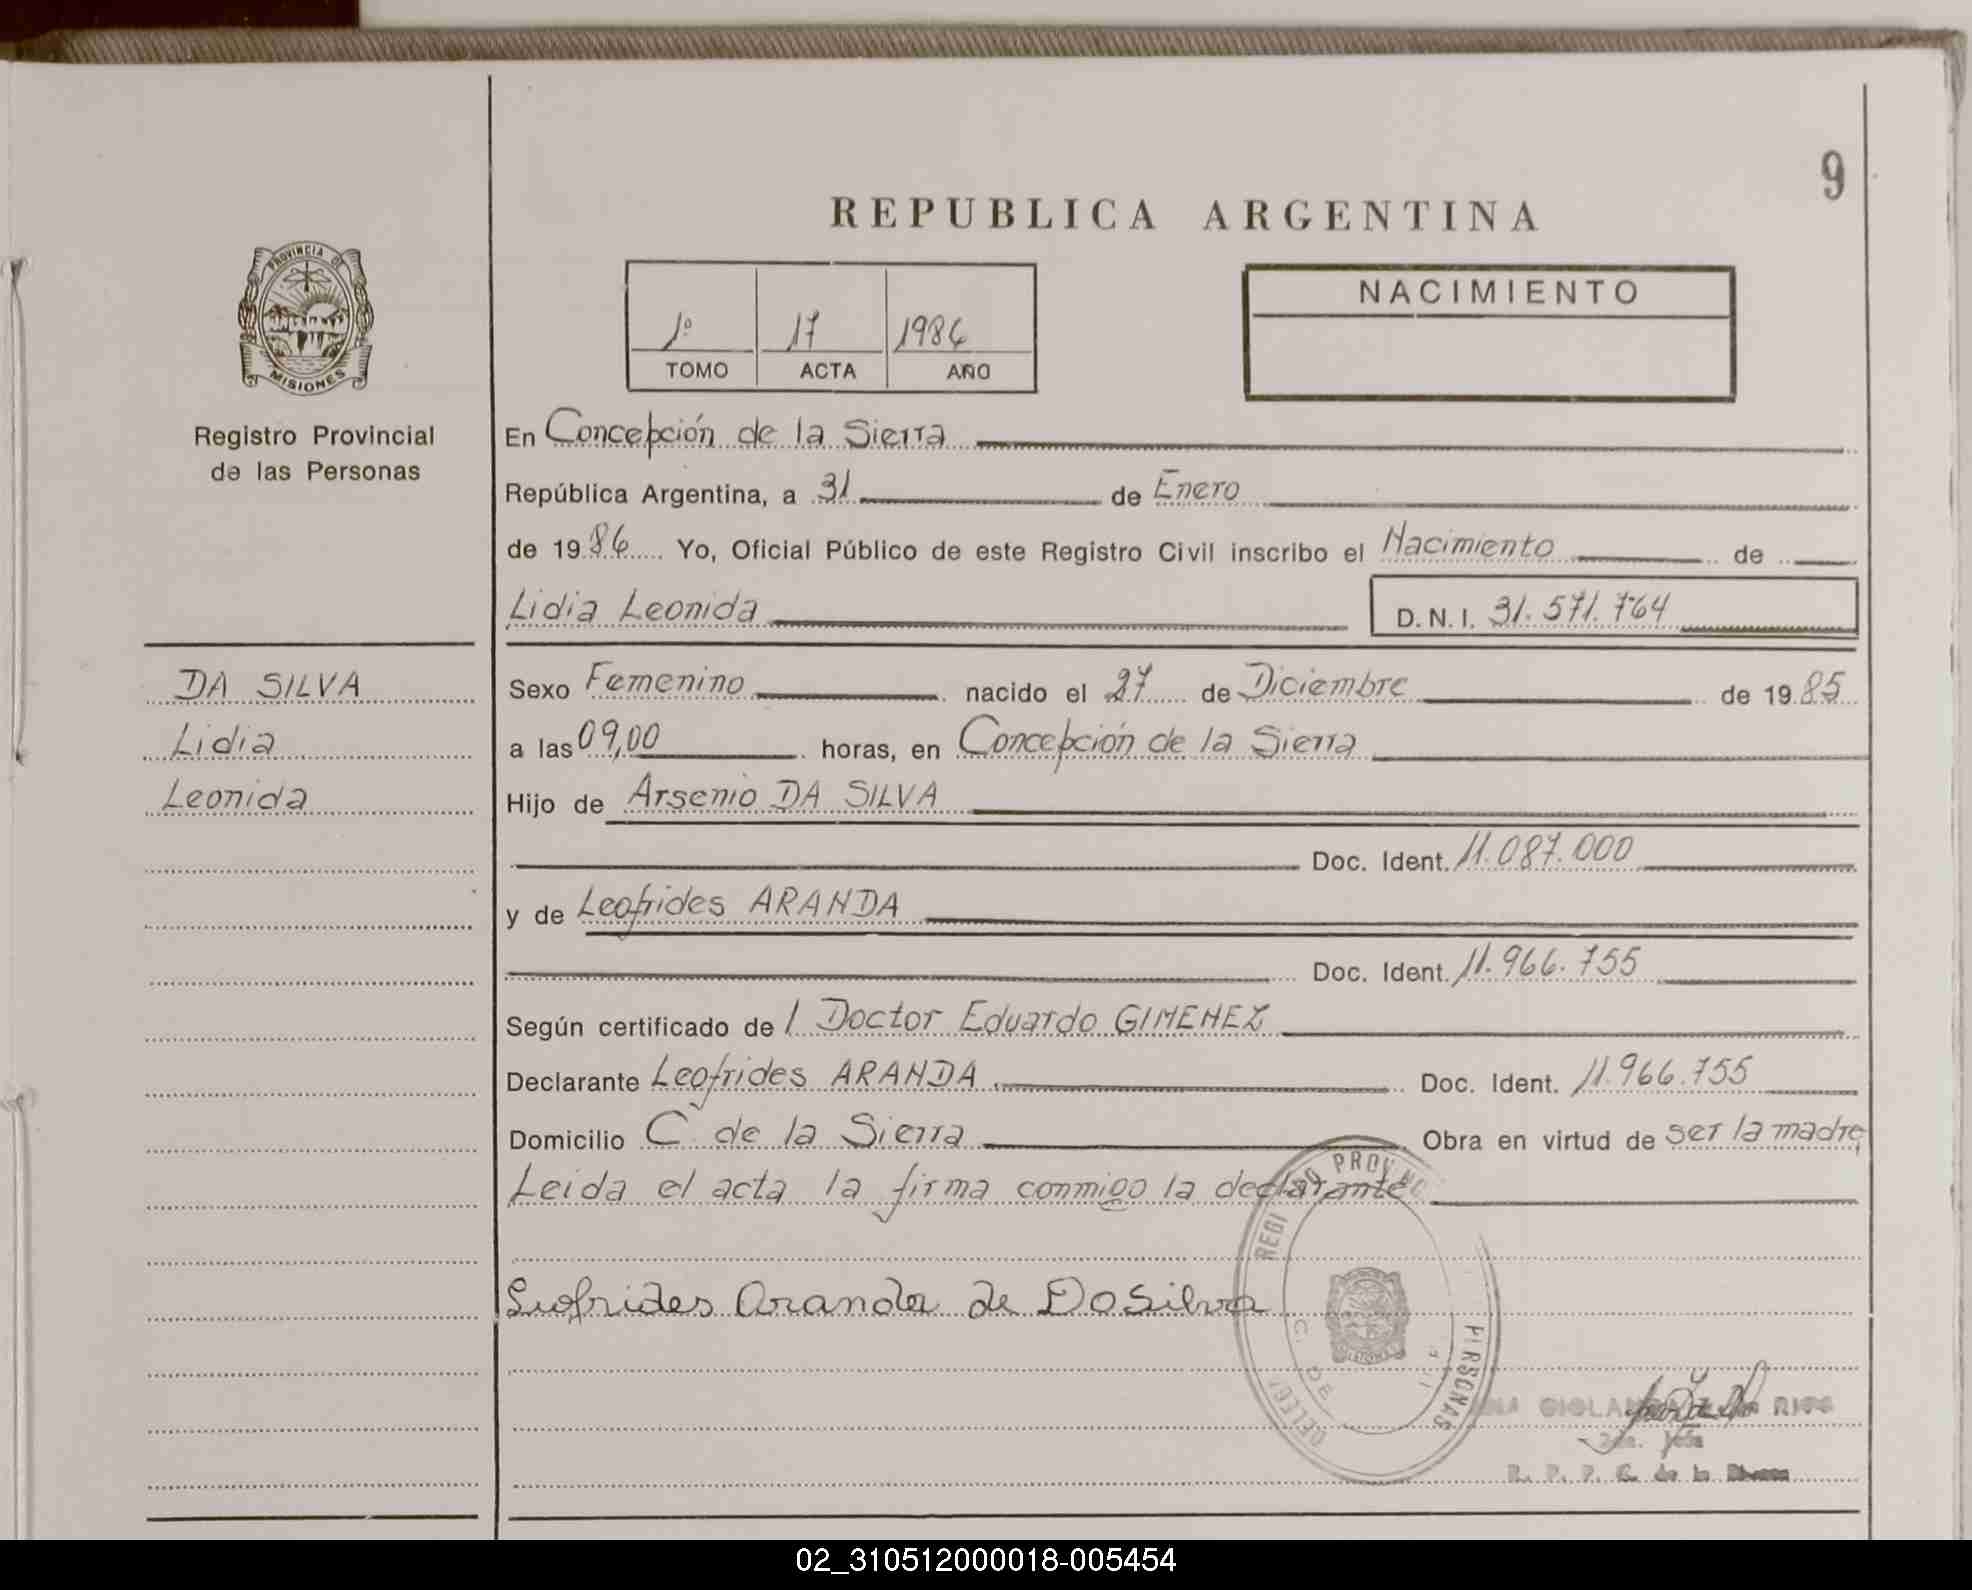 9
REPUBLICA ARGENTINA
PROVINCIA DE
MISIONES
Registro Provincial
de las Personas
1º 17 1986
TOMO ACTA AÑO
NACIMIENTO
En Concepción de la Sierra
República Argentina, a 31 de Enero
de 1986 Yo, Oficial Público de este Registro Civil inscribo el Nacimiento de
Lidia Leonida D.N.I. 31.571.764
DA SILVA
Lidia
Leonida
Sexo Femenino nacido el 27 de Diciembre de 1985
a las 09,00 horas, en Concepción de la Sierra
Hijo de Arsenio DA SILVA
Doc. Ident. 11.087.000
y de Leofrides ARANDA
Doc. Ident. 11.966.755
Según certificado de l Doctor Eduardo GIMENEZ
Declarante Leofrides ARANDA Doc. Ident. 11.966.755
Domicilio C. de la Sierra Obra en virtud de ser la madre,
Leida el acta la firma conmigo la declarante
Leofrides Aranda de Da Silva
PERSONAS
RIOS
R. P. P. C. de la Sierra
02_310512000018-005454